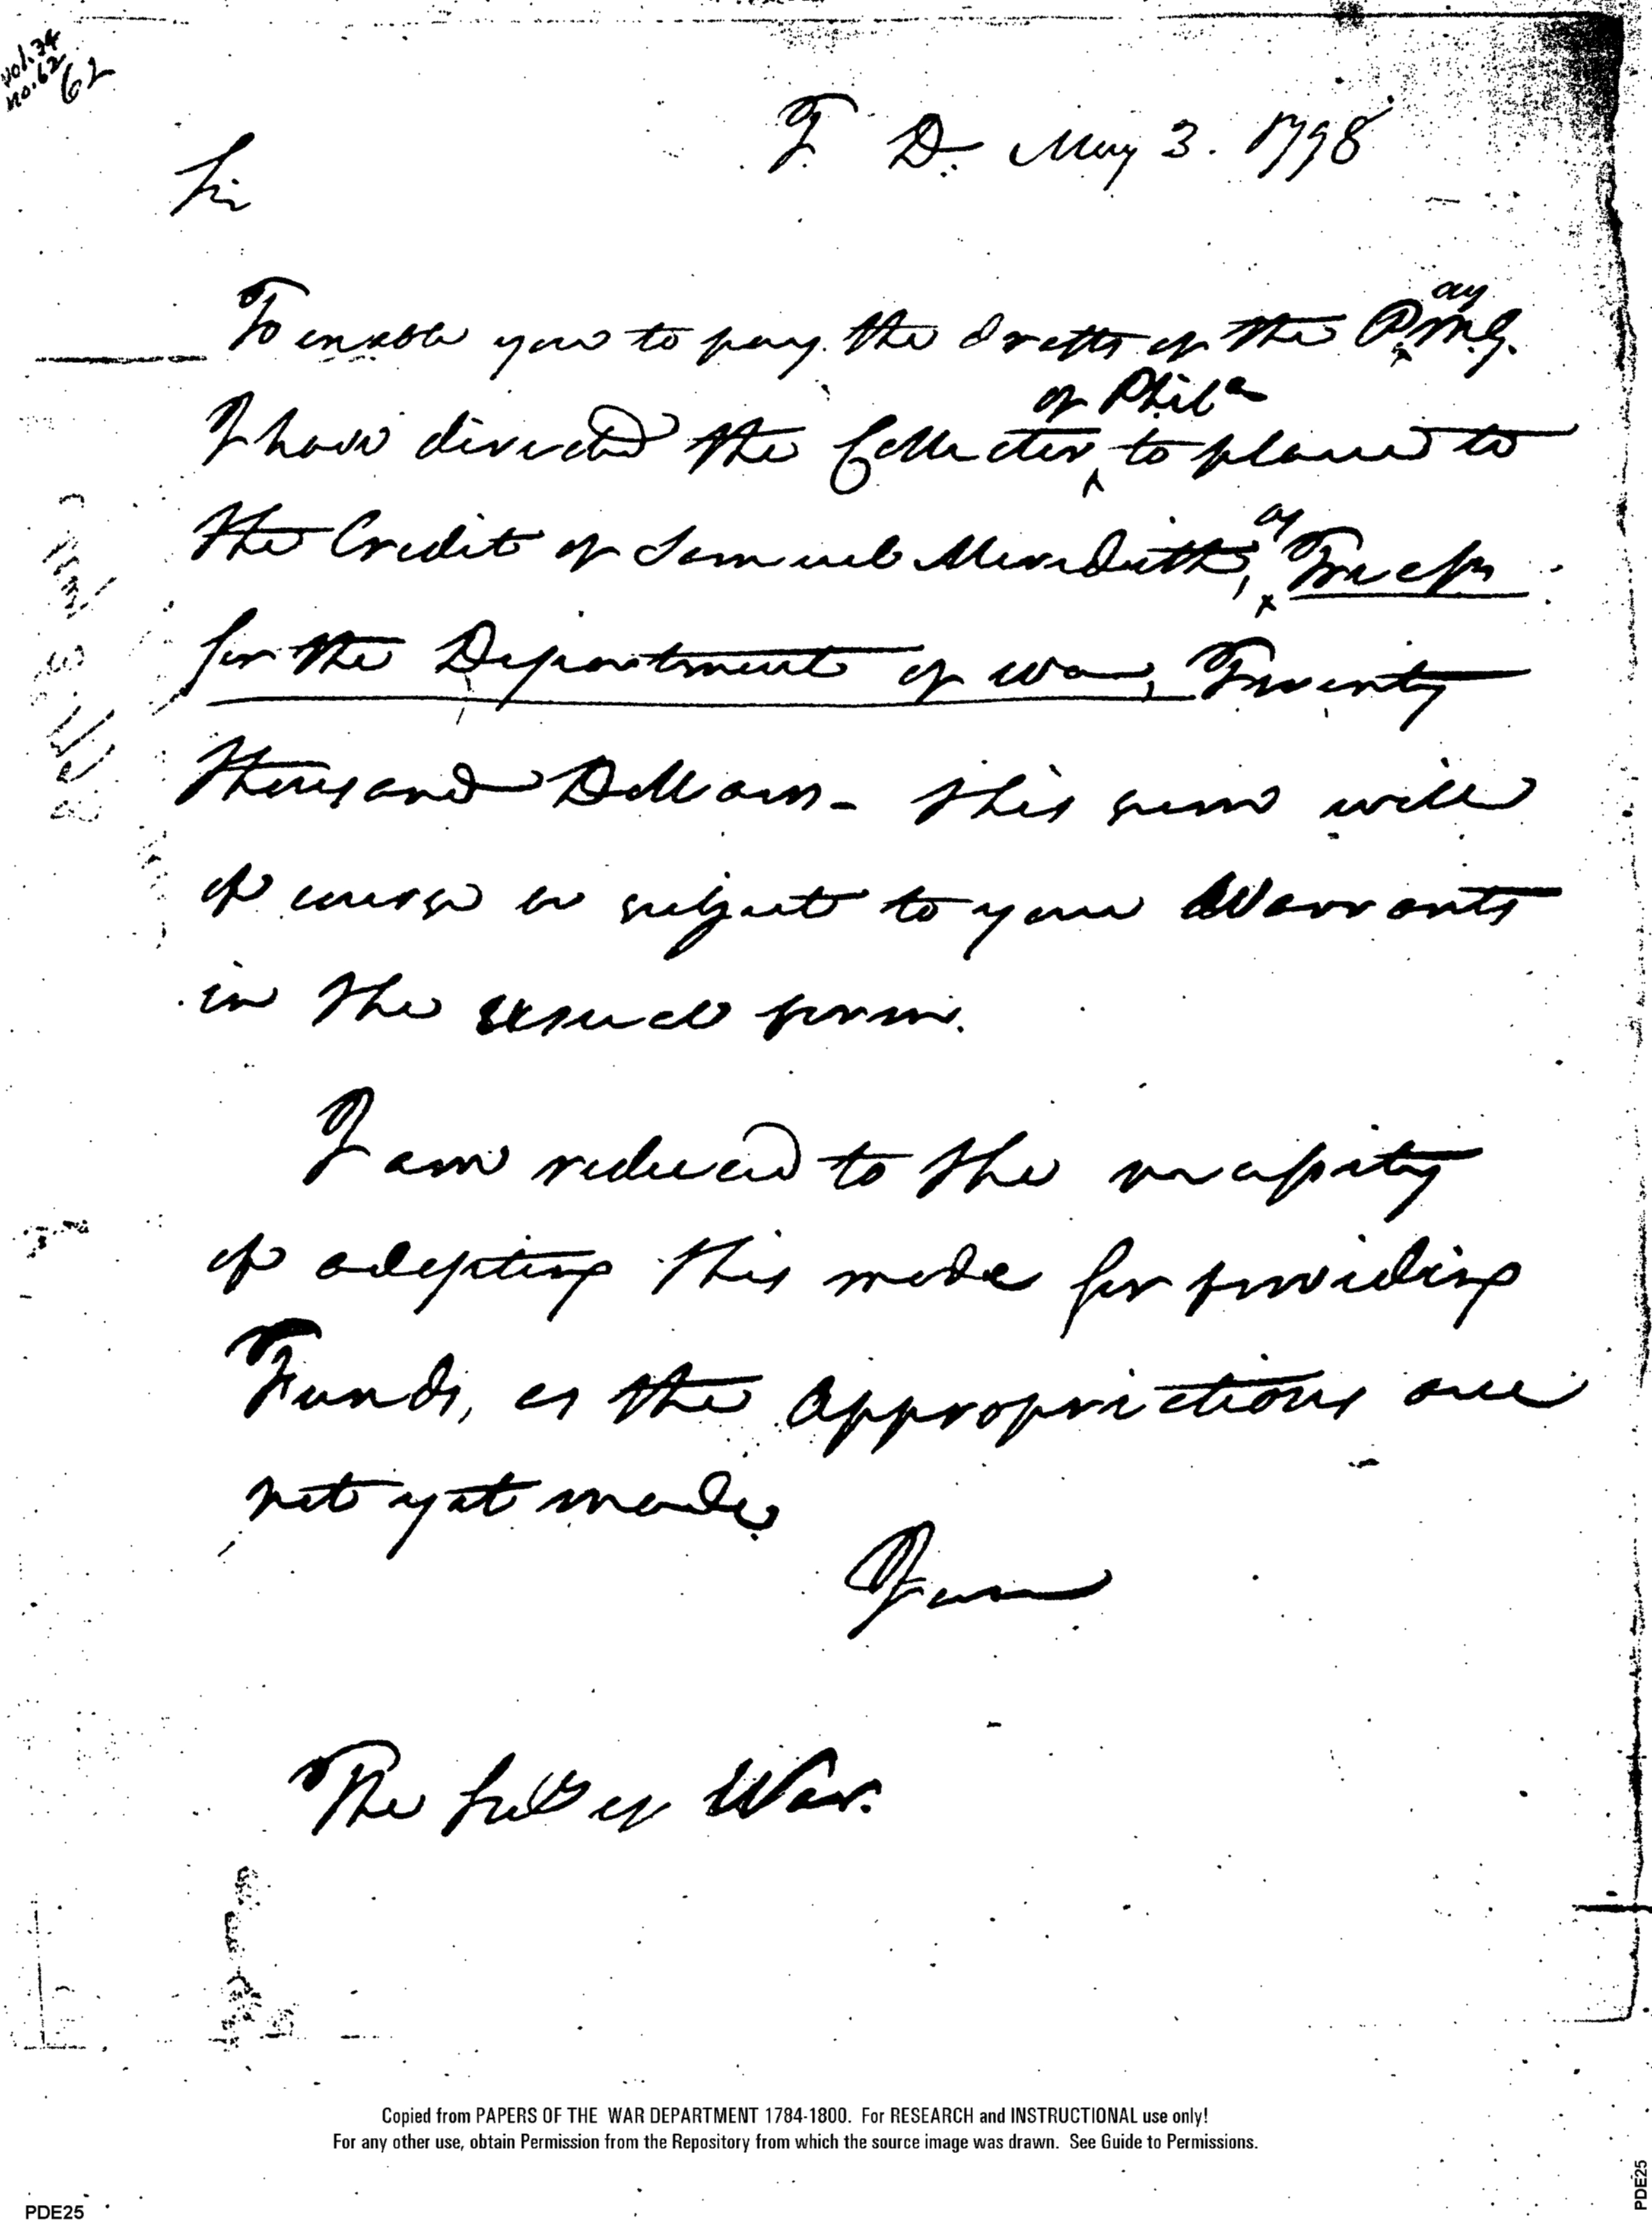 vol. 34
no. 62
62
T. D. May 3. 1798
Sir
To enable you to pay the drafts of the P.M.G.
ay
I have directed the Collector to place to
of Phila
the Credit of Samuel Meredith, as Treasr
for the Department of War, Twenty
thousand Dollars - this sum will
of course be subject to your Warrants
in the usual form.
I am reduced to the necessity
of adopting this mode for providing
Funds, as the appropriations are
not yet made.
I am
The Secy of War.
Copied from PAPERS OF THE WAR DEPARTMENT 1784-1800. For RESEARCH and INSTRUCTIONAL use only!
For any other use, obtain Permission from the Repository from which the source image was drawn. See Guide to Permissions.
PDE25
PDE25